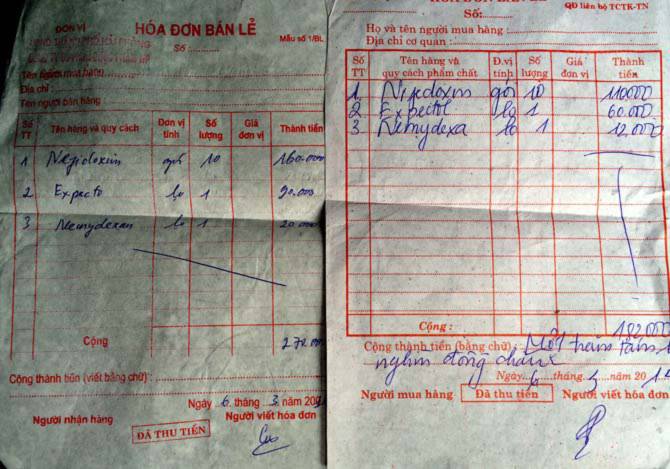 ĐƠN VỊ
HÓA ĐƠN BÁN LẺ
Mẫu số 1/BL
Số:
Tên người mua hàng
Địa chỉ:
Tên người bán hàng
Số TT Tên hàng và quy cách Đơn vị tính Số lượng Giá đơn vị Thành tiền
1 Nepidoxim gói 10 160.000
2 Expecto lọ 1 90.000
3 Nemydexan lọ 1 20.000
Cộng 270.000
Cộng thành tiền (viết bằng chữ):
Ngày 6 tháng 3 năm 20
Người nhận hàng Người viết hóa đơn
ĐÃ THU TIỀN
HÓA ĐƠN BÁN LẺ
QĐ liên bộ TCTK-TN
Số:
Họ và tên người mua hàng:
Địa chỉ cơ quan:
Số TT Tên hàng và quy cách phẩm chất Đ.vị tính Số lượng Giá đơn vị Thành tiền
1 gói 10 110.000
2 Expectol lọ 1 60.000
3 Nemydexa lọ 1 12.000
Cộng: 182.000
Cộng thành tiền (bằng chữ): Một trăm tám
nghìn đồng chẵn
Ngày 6 tháng 3 năm 2014
Người mua hàng Đã thu tiền Người viết hóa đơn